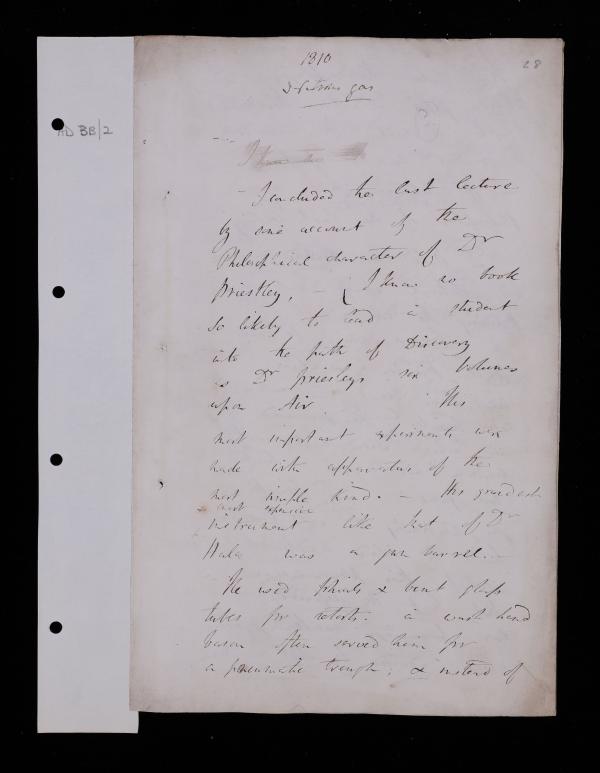 1810
28
Nitrous gas
HD BB/2
– I concluded the last lecture
by some account of the
Philosophical character of Dr
Priestley, – I know no book
so likely to lead a student
into the path of Discovery
as Dr Priesleys six Volumes
upon Air. His
most important experiments were
made with apparatus of the
most simple kind. – His grandest
most expensive
instrument like that of Dr
Hales was a gun barrel. –
He used phials & bent glass
tubes for retorts. a wash hand
bason often served him for
a pneumatic trough, & instead of